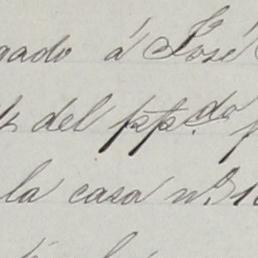 gado á José
del pp.do
la casa nº 1